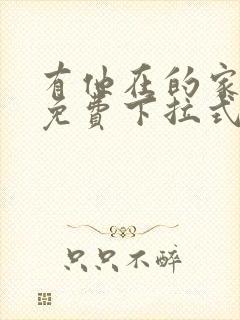 有他在的家
免费下拉式
只只不醉